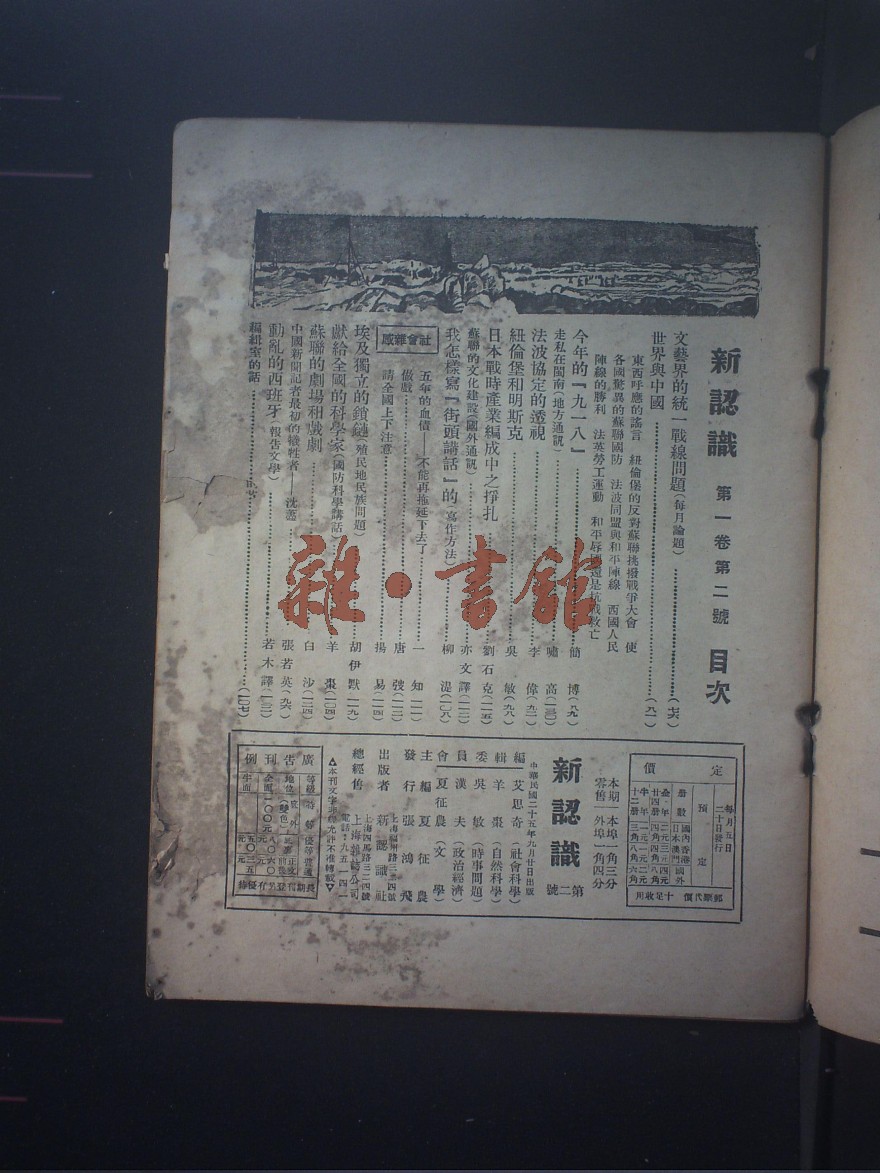 新認識 第一卷第二號 目次
文藝界的統一戰線問題(每月論題)……(七六)
世界與中國……(八一)
東西呼應的謠言 紐倫堡的反對蘇聯挑撥戰爭大會 使
各國驚異的蘇聯國防 法波同盟與和平陣線 西國人民
陣線的勝利 法英勞工運動 和平辱國還是抗戰救亡
今年的『九一八』……簡博(八九)
走私在閩南(地方通訊)……嘯高(一三〇)
法波協定的透視……李偉(九二)
紐倫堡和明斯克……吳敏(九八)
日本戰時產業編成中之掙扎……劉石克(一一五)
蘇聯的文化建設(國外通訊)……亦文譯(一二三)
我怎樣寫『街頭講話』的(寫作方法)……柳湜(一〇八)
社會雜感
五年的血債——不能再拖延下去了……一知(一一一)
做戲……唐弢(一一三)
請全國上下注意……揚易(一一四)
埃及獨立的鎖鏈(殖民地民族問題)……胡伊默(一一九)
獻給全國的科學家(國防科學講話)……羊棗(一〇四)
蘇聯的劇場和戲劇……白沙(一二四)
中國新聞記者最初的犧牲者——沈藎……張若英(九六)
動亂的西班牙(報告文學)……若木譯(一三二)
編輯室的話……(一〇七)
定價
每月五日二十日發行
預定
冊數 國內日本 香港澳門 國外
全年廿四冊 二元四角 三元四角 四元八角
半年十二冊 一元三角 一元八角 二元六角
郵票代價 十足收用
本期一本埠一角三分
零售一外埠一角四分
新認識 第二號
中華民國二十五年九月廿日出版
編輯委員會
艾思奇(社會科學)
羊棗(自然科學)
吳敏(時事問題)
漢夫(政治經濟)
夏征農(文學)
主編 夏征農
發行 張鴻飛
上海福州路三二四號
出版者 新認識社
上海四馬路三二四號
總經售 上海雜誌公司
電話:九五一四一
▲本刊文字非經允許不准轉載▼
廣告刊例
等級 特等 優等 普通
全面 一〇〇元 八〇元 六〇元
半面 五〇元 三五元
長期刊登另有優待
雜·書館